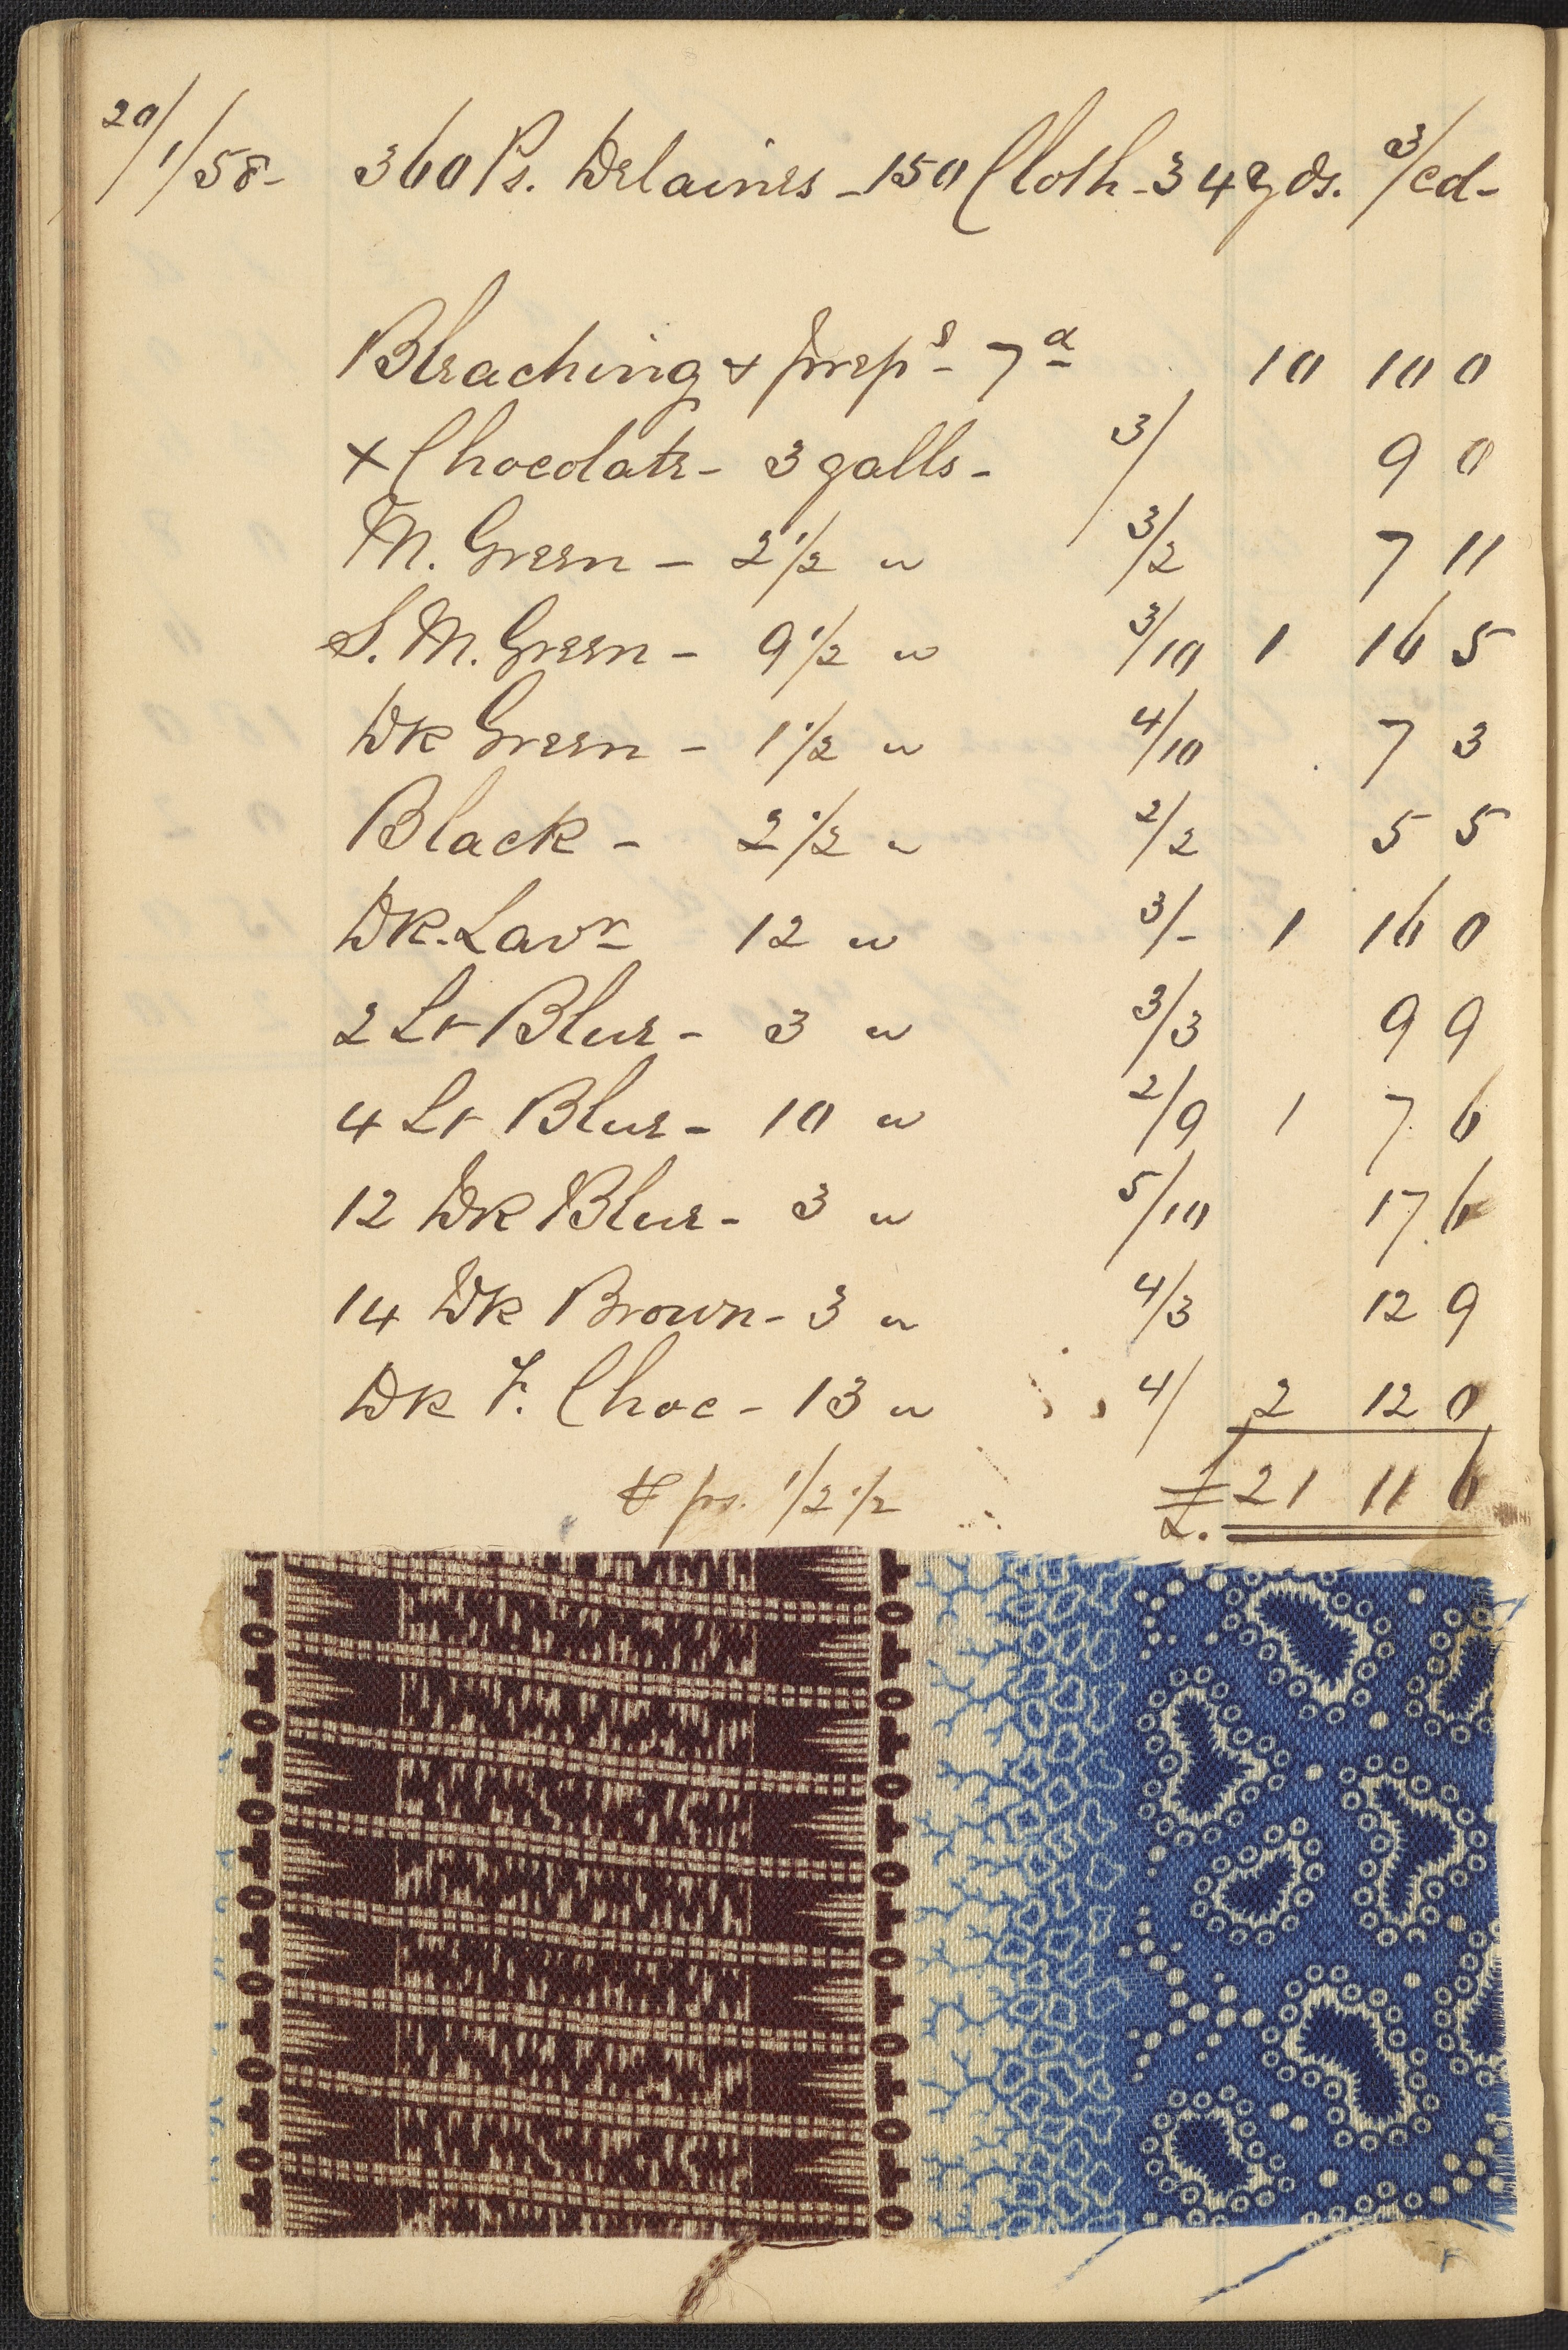 20/1/58- 360 Ps. Delaines - 150 Cloth - 34 yds. 3/cd-
Bleaching & prep g - 7 d 10 10 0
x Chocolate - 3 galls - 3/ 9 0
M. Green - 2 1/2 " 3/2 7 11
S. M. Green - 9 1/2 " 3/10 1 16 5
Dk Green - 1 1/2 " 4/10 7 3
Black - 2 1/2 " 2/2 5 5
Dk. Lavr 12 " 3/- 1 16 0
2 Lt Blue - 3 " 3/3 9 9
4 Lt Blue - 10 " 2/9 1 7 6
12 Dk Blue - 3 " 5/10 17 6
14 Dk Brown - 3 " 4/3 12 9
Dk F. Choc - 13 " 4/ 2 12 0
ps. 1/2 1/2 £ 21 11 6